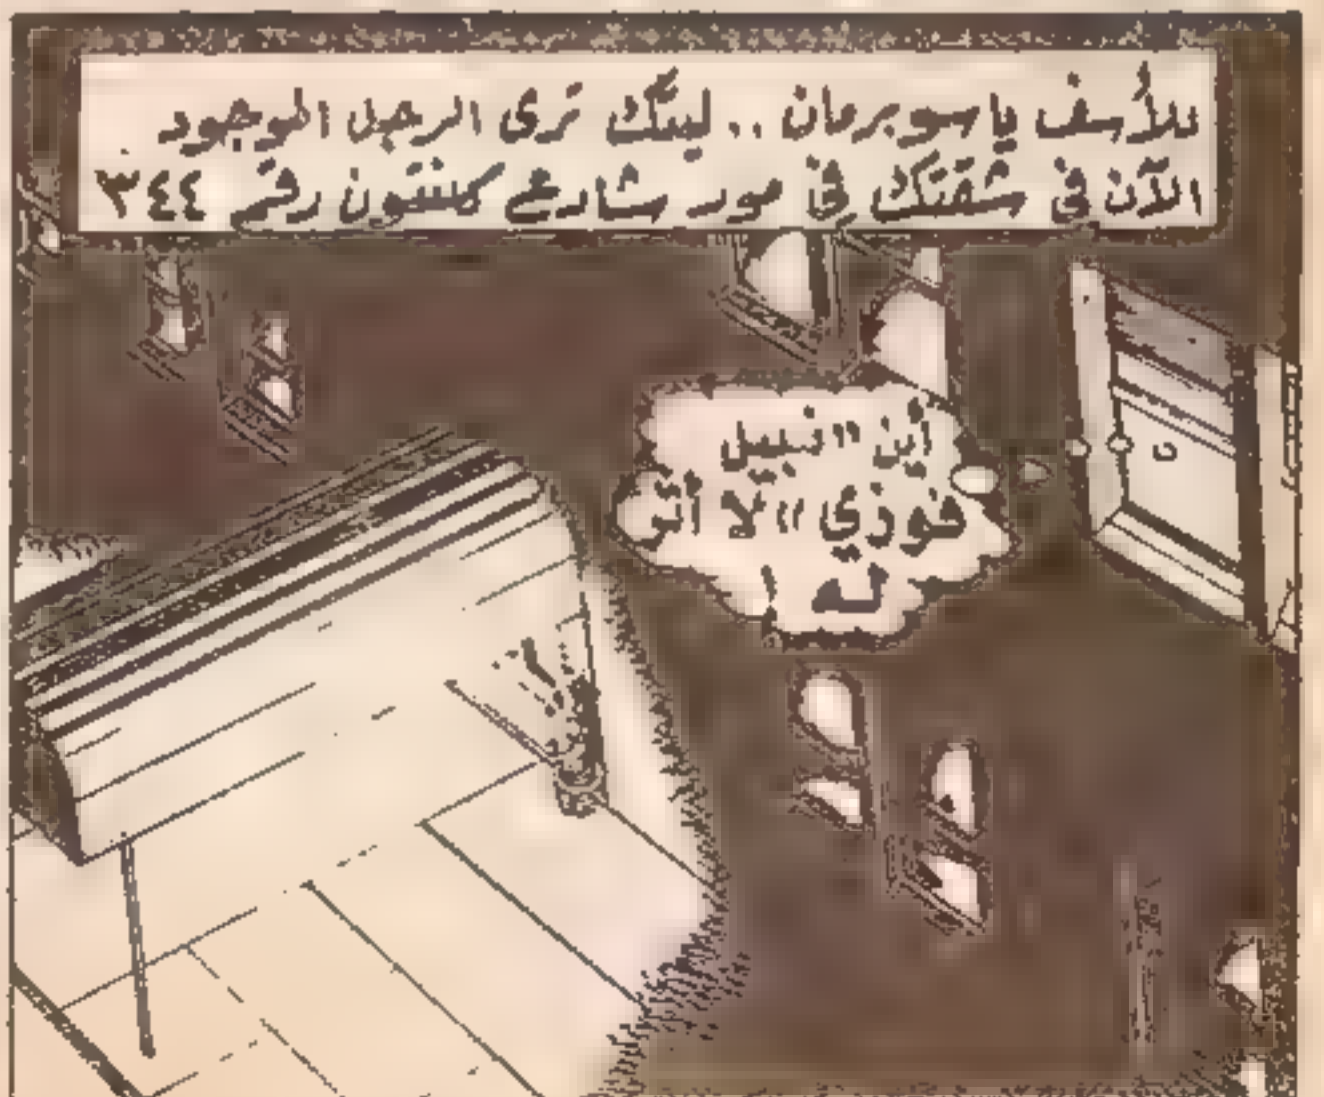 للأسف ياسوبرمان .. ليتك ترى الرجل الموجود
الآن في شقتك في مورد شارع كلنتون رقم ٣٤٤
أين "نبيل
فوزي" لا أثر
له !